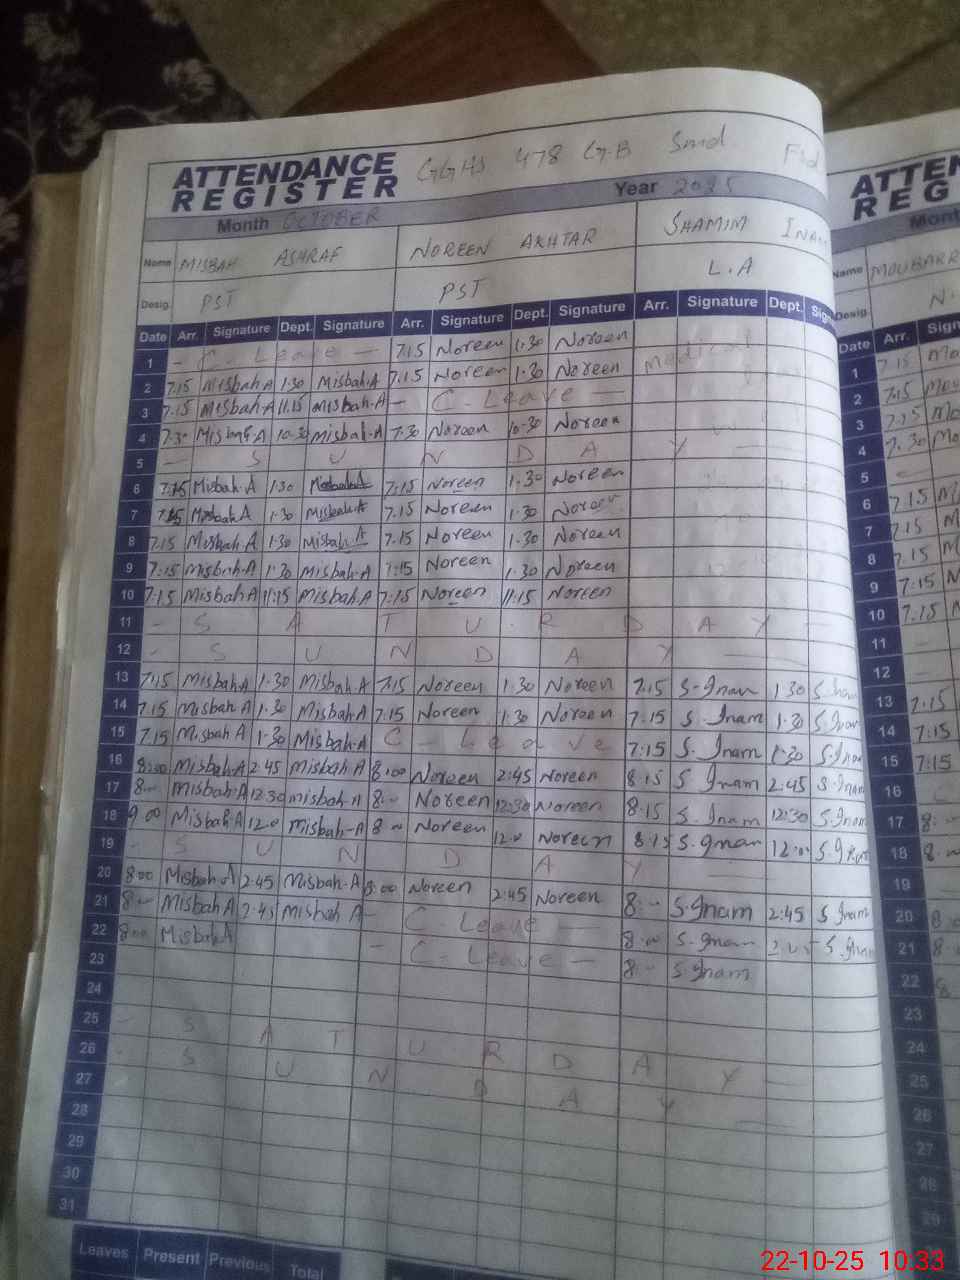 ATTENDANCE REGISTER GGHS 478 G.B Smd Fsd
Month OCTOBER Year 2025
Name MISBAH ASHRAF NOREEN AKHTAR SHAMIM INAM
Desig. PST PST L.A
Date Arr. Signature Dept. Signature Arr. Signature Dept. Signature Arr. Signature Dept. Sign
1 - C. Leave - 7.15 Noreen 1.30 Noreen
2 7.15 Misbah.A 1.30 Misbah.A 7.15 Noreen 1.30 Noreen Medical
3 7.15 Misbah.A 11.15 Misbah.A - C. Leave -
4 7.30 Misbah.A 10.30 Misbah.A 7.30 Noreen 10.30 Noreen
5 - S U N D A Y -
6 7.15 Misbah.A 1.30 Misbah.A 7:15 Noreen 1.30 Noreen
7 7.15 Misbah.A 1.30 Misbah.A 7.15 Noreen 1.30 Noreen
8 7.15 Misbah.A 1.30 Misbah.A 7.15 Noreen 1.30 Noreen
9 7:15 Misbah.A 1.30 Misbah.A 7:15 Noreen 1.30 Noreen
10 7:15 Misbah.A 11:15 Misbah.A 7:15 Noreen 11:15 Noreen
11 - S A T U R D A Y -
12 - S U N D A Y -
13 7.15 Misbah.A 1.30 Misbah.A 7.15 Noreen 1.30 Noreen 7.15 S.Inam 1.30 S.Inam
14 7.15 Misbah.A 1.30 Misbah.A 7.15 Noreen 1.30 Noreen 7.15 S.Inam 1.30 S.Inam
15 7.15 Misbah A 1.30 Misbah.A C - Leave 7:15 S.Inam 1.30 S.Inam
16 8:00 Misbah.A 2:45 Misbah A 8:00 Noreen 2:45 Noreen 8:15 S.Inam 2:45 S.Inam
17 8:00 Misbah.A 12:30 misbah.A 8:00 Noreen 12:30 Noreen 8:15 S.Inam 12:30 S.Inam
18 9.00 Misbah.A 12.0 Misbah-A 8:00 Noreen 12.0 Noreen 8:15 S.Inam 12:00 S.Inam
19 - S U N D A Y -
20 8:00 Misbah.A 2:45 Misbah.A 8:00 Noreen 2:45 Noreen 8:00 S.Inam 2:45 S.Inam
21 8:00 Misbah A 2:45 Misbah A - C. Leave - 8:00 S.Inam S.Inam
22 8:00 Misbah A - C. Leave - 8:00 S.Inam
23
24
25 - S A T U R D A Y
26 - S U N D A Y -
27
28
29
30
31
Leaves Present Previous Total
ATTEN
REG
Mont
Name MOUBARR
Desig.
Date Arr. Sign
1 7.15
2 7.15
3 7.15
4 7.30
5
6 7.15
7 7.15
8 7.15
9 7:15
10 7.15
11
12
13 7.15
14 7:15
15 7:15
16
17 8:
18 8:
19
20 8
21 8
22 8
23
24
25
26
27
28
29
22-10-25 10:33